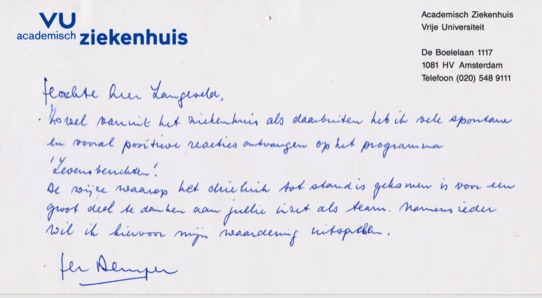 VU
academisch ziekenhuis
Academisch Ziekenhuis
Vrije Universiteit
De Boelelaan 1117
1081 HV Amsterdam
Telefoon (020) 548 9111
Geachte heer Langeveld,
Zowel vanuit het ziekenhuis als daarbuiten heb ik vele spontane
en vooral positieve reacties ontvangen op het programma
'Levensberichten'.
De wijze waarop het drieluik tot stand is gekomen is voor een
groot deel te danken aan jullie inzet als team. Namens ieder
wil ik hiervoor mijn waardering uitspreken.